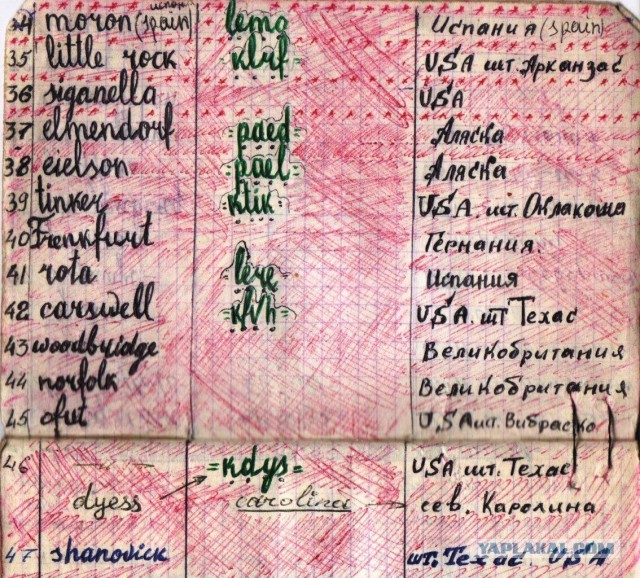 34 moron (spain) lemo Испания (spain)
35 little rock =klrf= USA шт. Арканзас
36 siganella USA
37 elmendorf =paed= Аляска
38 eielson =pael= Аляска
39 tinker =ktik= USA. шт. Оклахома
40 Frenkfurt Германия.
41 rota Испания
42 carswell =kfvh= USA. шт Техас
43 woodbridge Великобритания
44 norfolk Великобритания
45 ofut USA шт. Вибраско
46 =kdys= USA шт. Техас
dyess carolina сев. Каролина
47 shanovick шт. Техас. USA
YAPLAKAL.COM